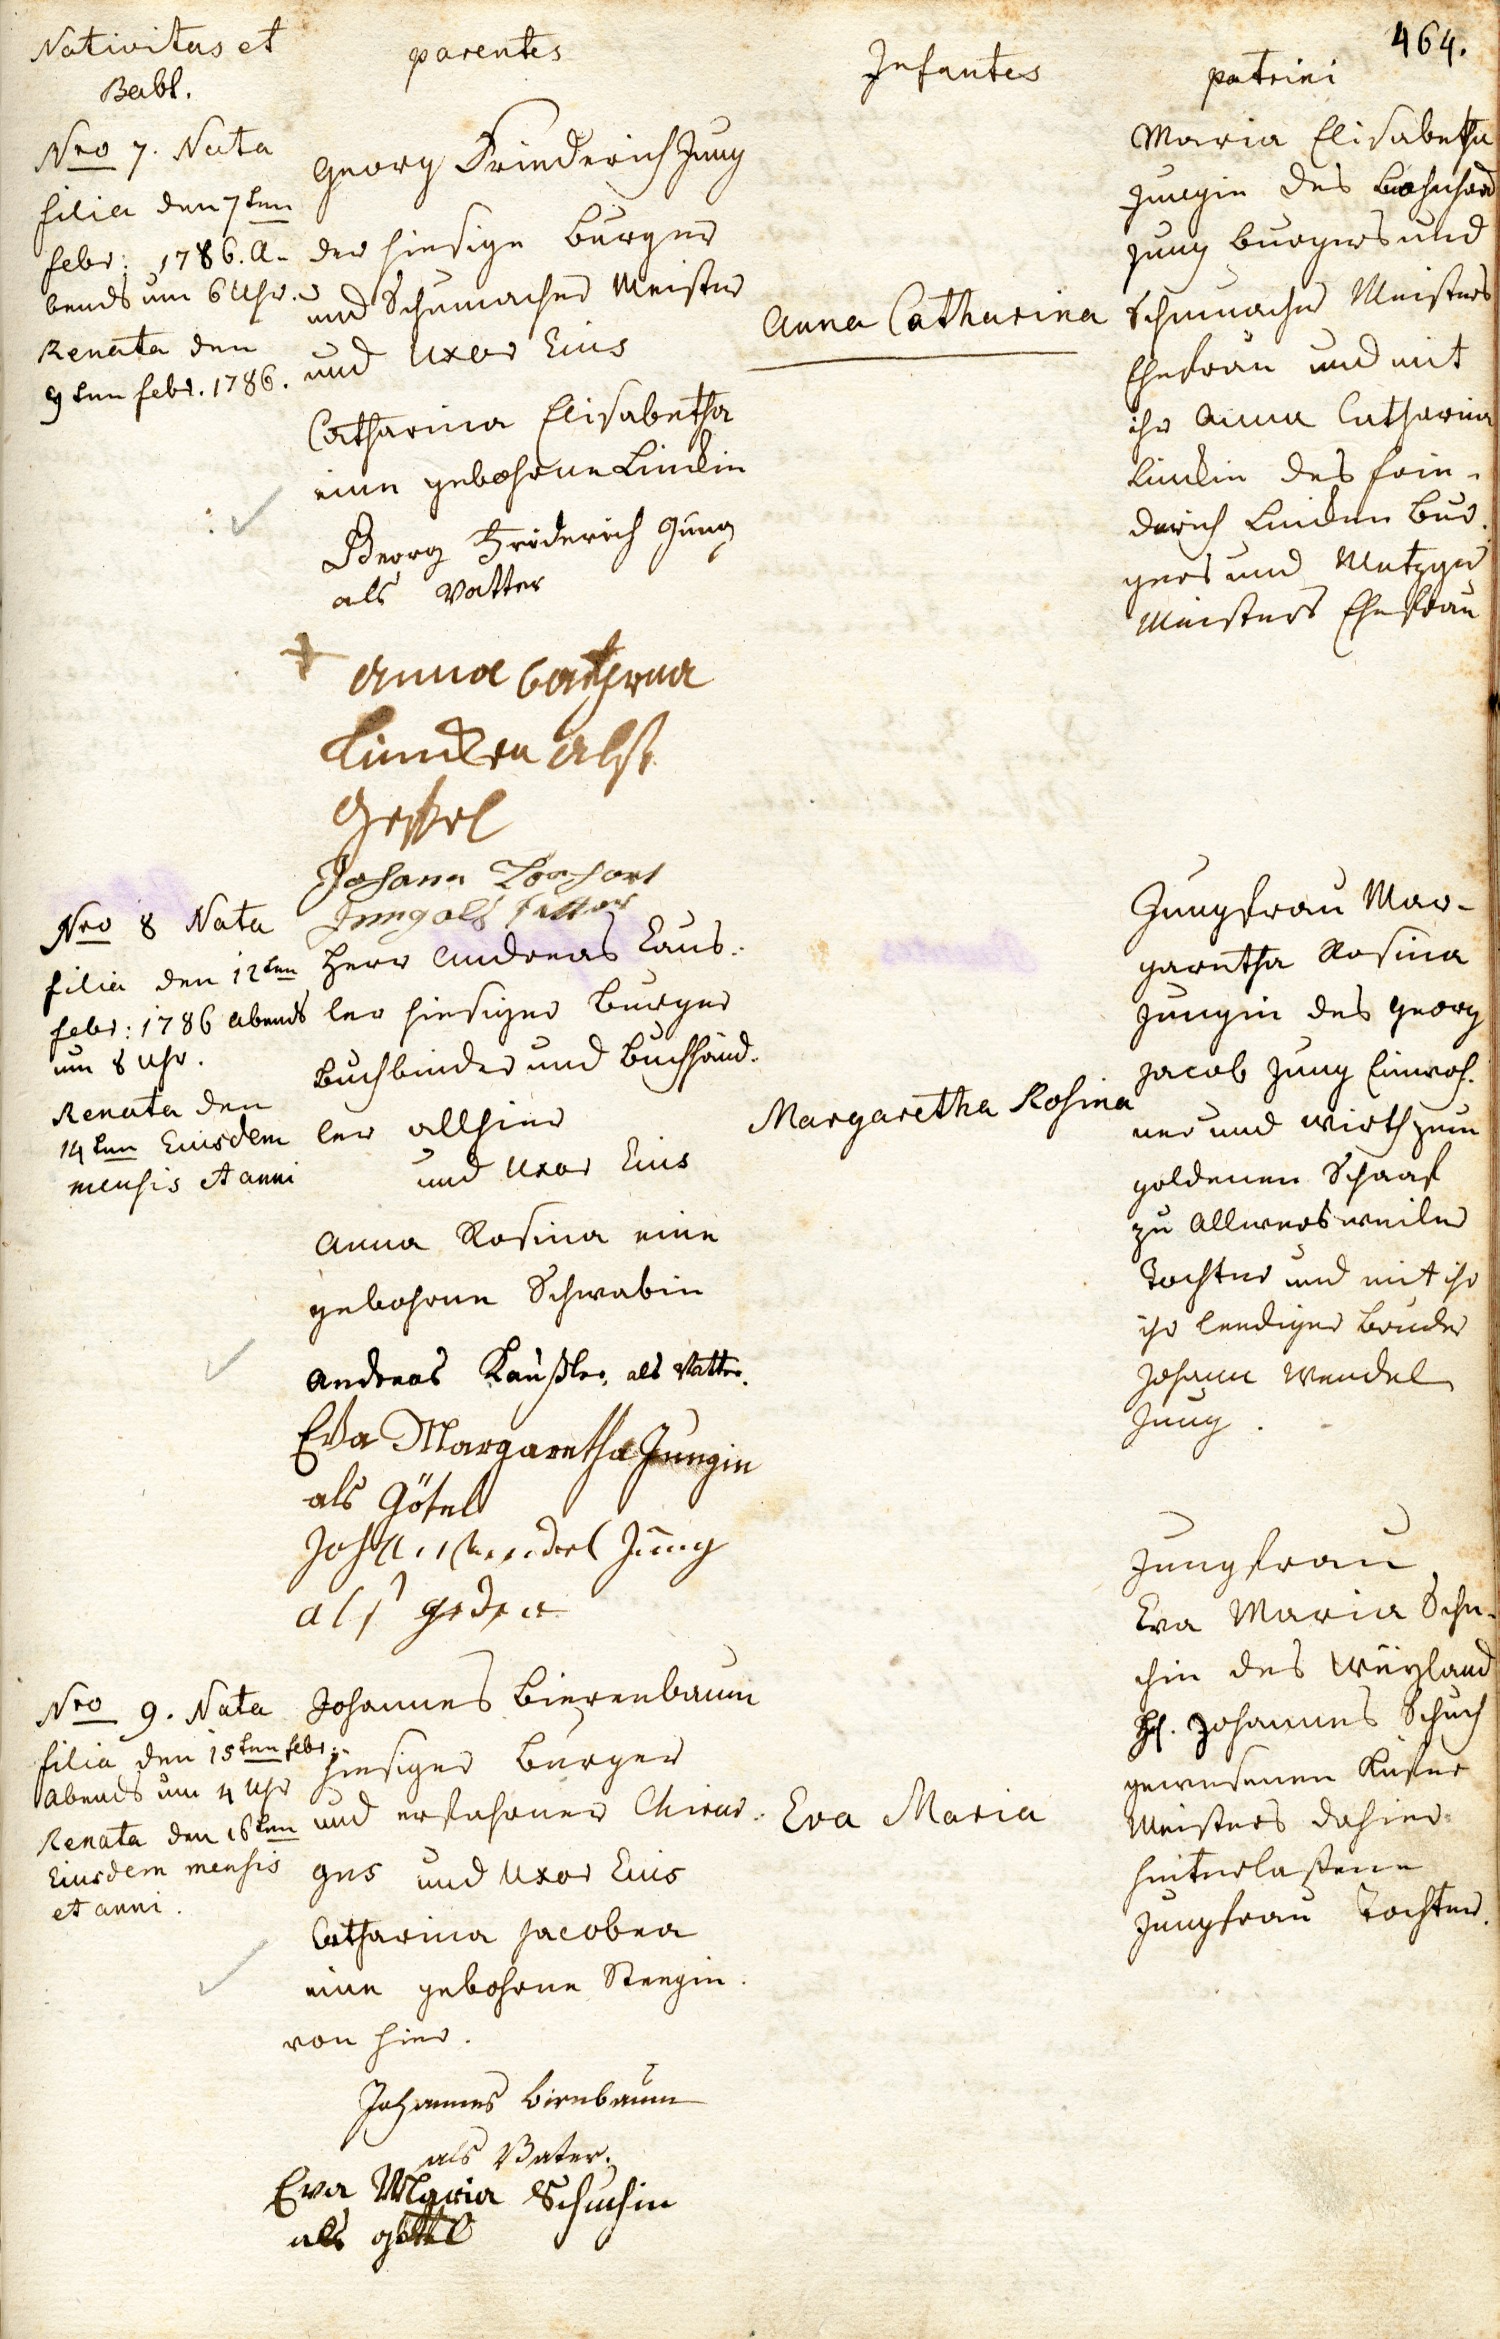 464.
Nativitas et
Babt.
parentes
Infantes
patrini
Nro 7. Nata
filia den 7ten
febr: 1786. A-
bends um 6 Uhr.
Renata den
9ten febr. 1786.
Georg Friederich Jung
der hiesige Burger
und Schumacher Meister
und Uxor Eius
Catharina Elisabetha
eine gebohrne Linckin
Georg Friderich Jung
als Vatter
+ anna Catrina
als
Gettel
Johann
Jung als
Anna Catharina
Maria Elisabetha
Jungin des
Jung burgers und
Schumacher Meisters
Ehefrau und mit
ihr Anna Catharina
Linckin des frie-
derich Lincken Bur-
gers und Metzger
Meisters Ehefrau
Nro 8 Nata
filia den 12ten
febr: 1786 abends
um 8 Uhr.
Renata den
14ten Eiusdem
mensis et anni
Herr Andreas Kaus-
ler hiesiger Burger
Buchbinder und Buchhänd-
ler allhier
und Uxor Eius
Anna Rosina eine
gebohrne Schwabin
Andreas Kaußler, als Vatter.
Eva Margaretha Jungin
als Götel
Johann Wendel Jung
alß
Margaretha Rosina
Jungfrau Mar-
garetha Rosina
Jungin des Georg
Jacob Jung Einwoh-
ner und Wirth zum
goldenen Schaaf
zu Allwersweiler
Tochter und mit ihr
ihr leediger Bruder
Johann Wendel
Jung.
Nro 9. Nata
filia den 15ten febr:
Abends um 4 Uhr
Renata den 16ten
Eiusdem mensis
et anni.
Johannes Bierenbaum
hiesiger Burger
und erfahrner Chirur-
gus und Uxor Eius
Catharina Jacobea
eine gebohrne Steegin
von hier.
Johannes Birnbaum
als Vater.
Eva Maria Schuchin
als göttel
Eva Maria
Jungfrau
Eva Maria Schu-
chin des Weyland
H. Johannes Schuch
gewesenen Küfer
Meisters dahier
hinterlaßene
Jungfrau Tochter.